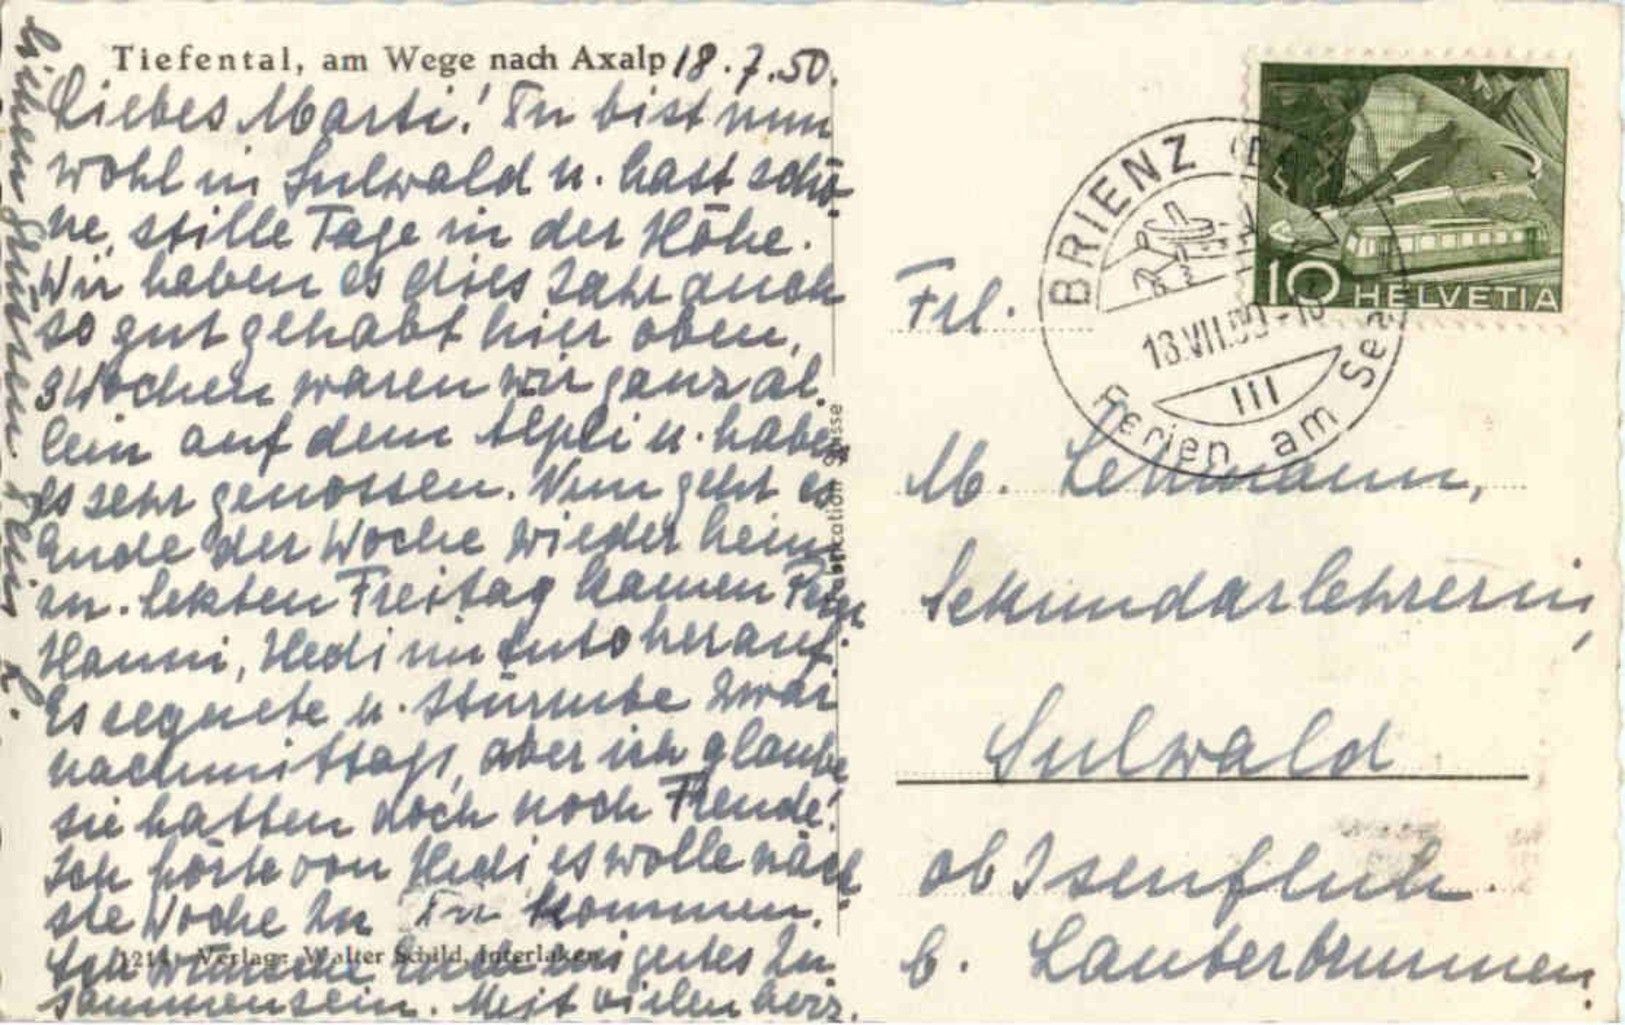 Tiefental, am Wege nach Axalp 18.7.50.
Liebes Marti! Du bist nun
wohl in Sulwald u. hast schö-
ne, stille Tage in der Höhe.
Wir haben es dies Jahr auch
so gut gehabt hier oben,
3 Wochen waren wir ganz al-
lein auf dem Alpli u. haben
es sehr genossen. Nun geht es
Ende der Woche wieder heim
zu. Letzten Freitag kamen
Hanni, Hedi im Auto herauf.
Es regnete u. stürmte zwar
nachmittags, aber ich glaube
sie hatten doch noch Freude!
Ich hörte von Hedi es wolle näch-
ste Woche zu Dir kommen.
Ich wünsche Euch ein gutes Zu-
sammensein. Mit vielen herz-
lichen Grüssen Dein L.
1214 Verlag: Walter Schild, Interlaken
BRIENZ
13.VII.50-10
III
Ferien am See
10 HELVETIA
Frl.
M. Lehmann,
Sekundarlehrerin,
Sulwald
ob Isenfluh.
b. Lauterbrunnen.